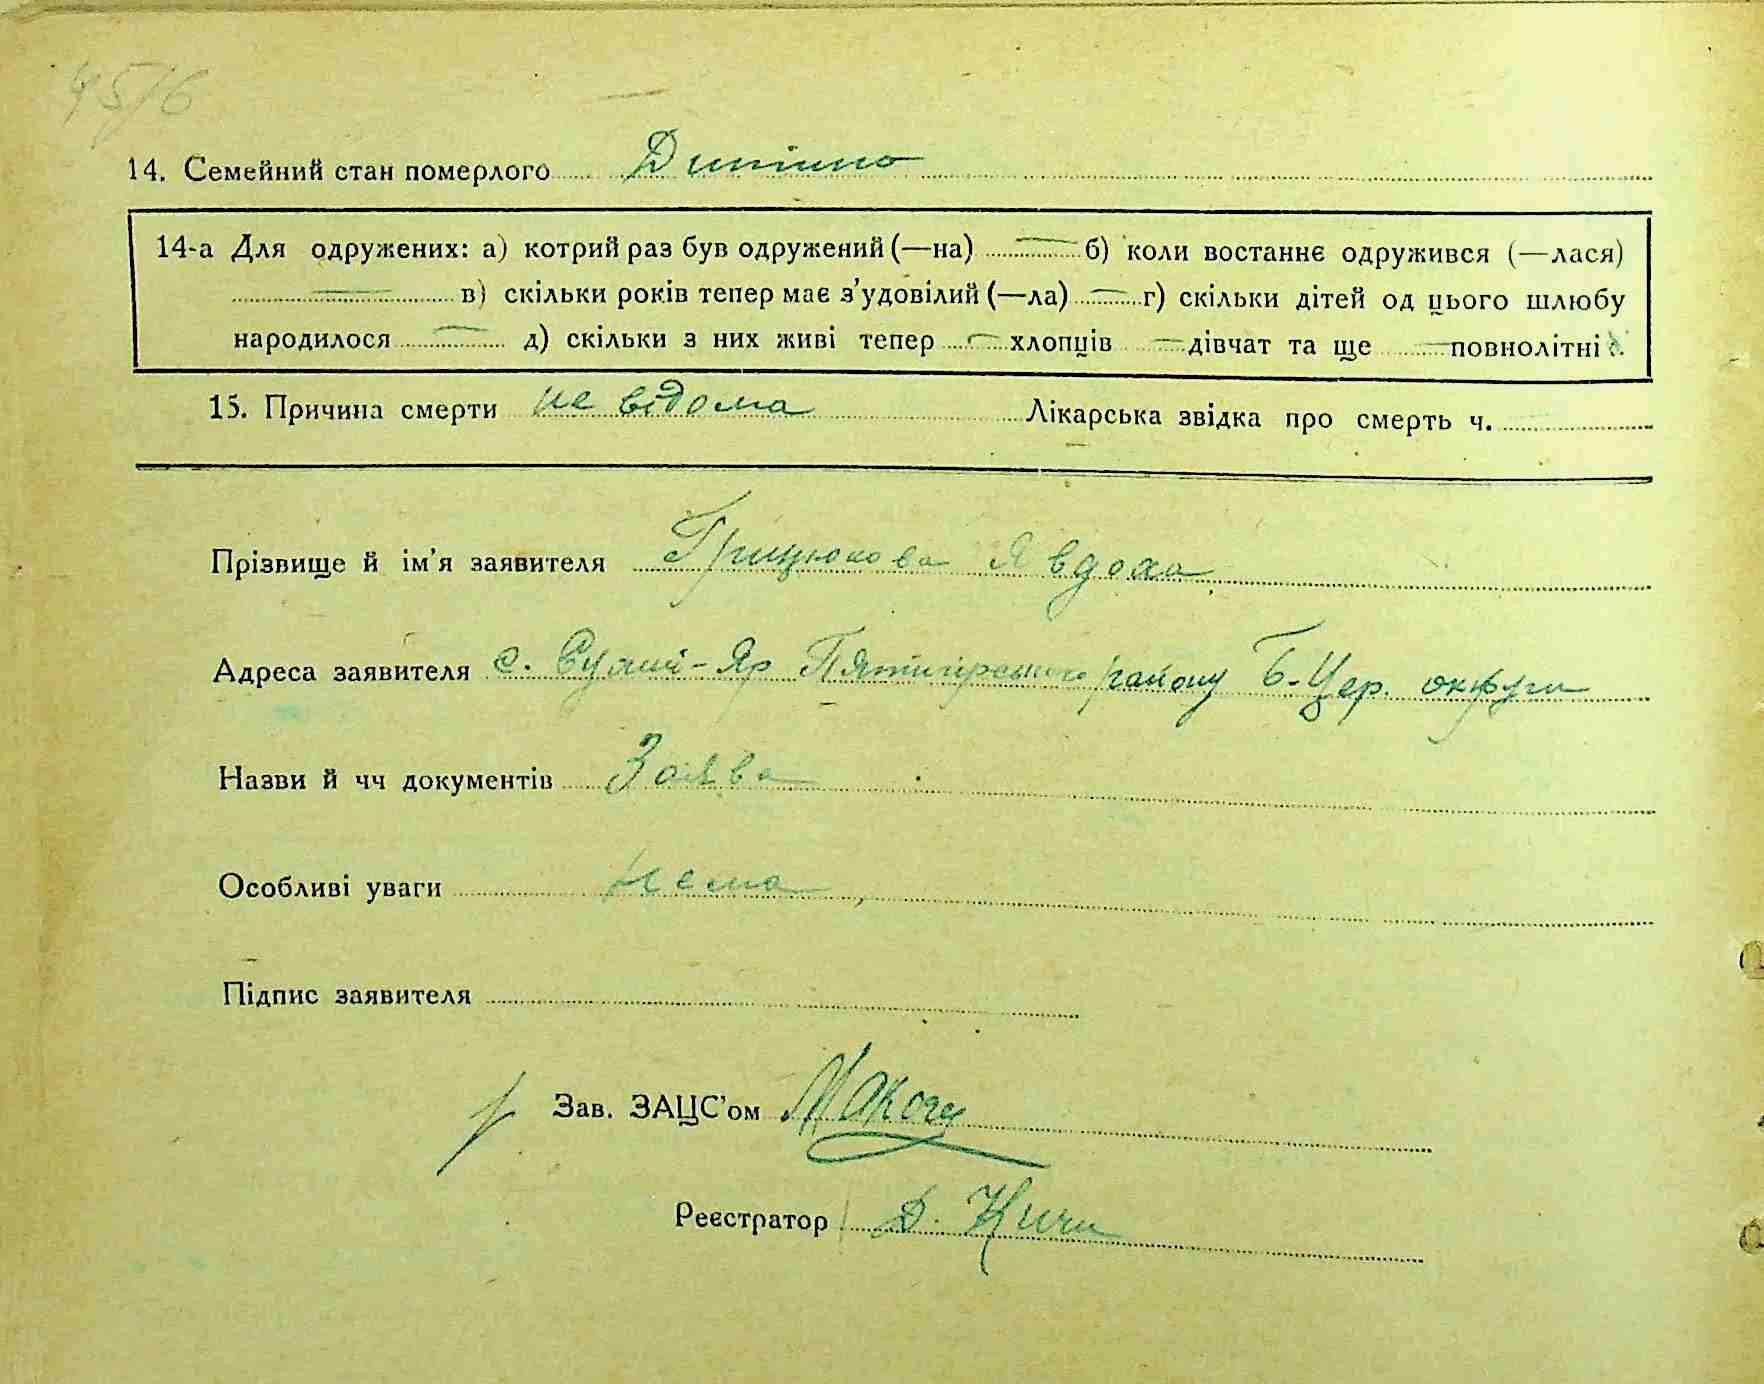 45/6
14. Семейний стан померлого Дитина
14-а Для одружених: а) котрий раз був одружений (—на) — б) коли востаннє одружився (—лася)
— в) скільки років тепер має з'удовілий (—ла) — г) скільки дітей од цього шлюбу
народилося — д) скільки з них живі тепер — хлопців — дівчат та ще — повнолітніх.
15. Причина смерти не відома Лікарська звідка про смерть ч.
Прізвище й ім'я заявителя Грицюкова Явдоха
Адреса заявителя с. Сухий-Яр Пятигірського району Б-Цер. округи
Назви й чч документів Заява
Особливі уваги нема
Підпис заявителя
Зав. ЗАЦС'ом
Реєстратор Д.